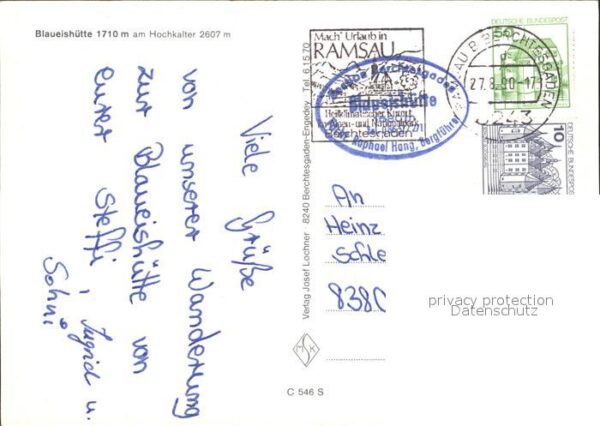 Blaueishütte 1710 m am Hochkalter 2607 m
Viele Grüße
von unserer Wanderung
zur Blaueishütte von
eurer Steffi, Ingrid u.
Sohni
Verlag Josef Lochner · 8240 Berchtesgaden-Engedey · Tel. 6 15 70
C 546 S
Mach' Urlaub in
RAMSAU
Heilklimatischer Kurort
Berchtesgaden
Blaueishütte
Raphael Hang, Bergführer
RAMSAU B BERCHTESGADEN
27.8.80-17
8243
DEUTSCHE BUNDESPOST
50
DEUTSCHE BUNDESPOST
10
An
Heinz
Schle
8380
privacy protection
Datenschutz